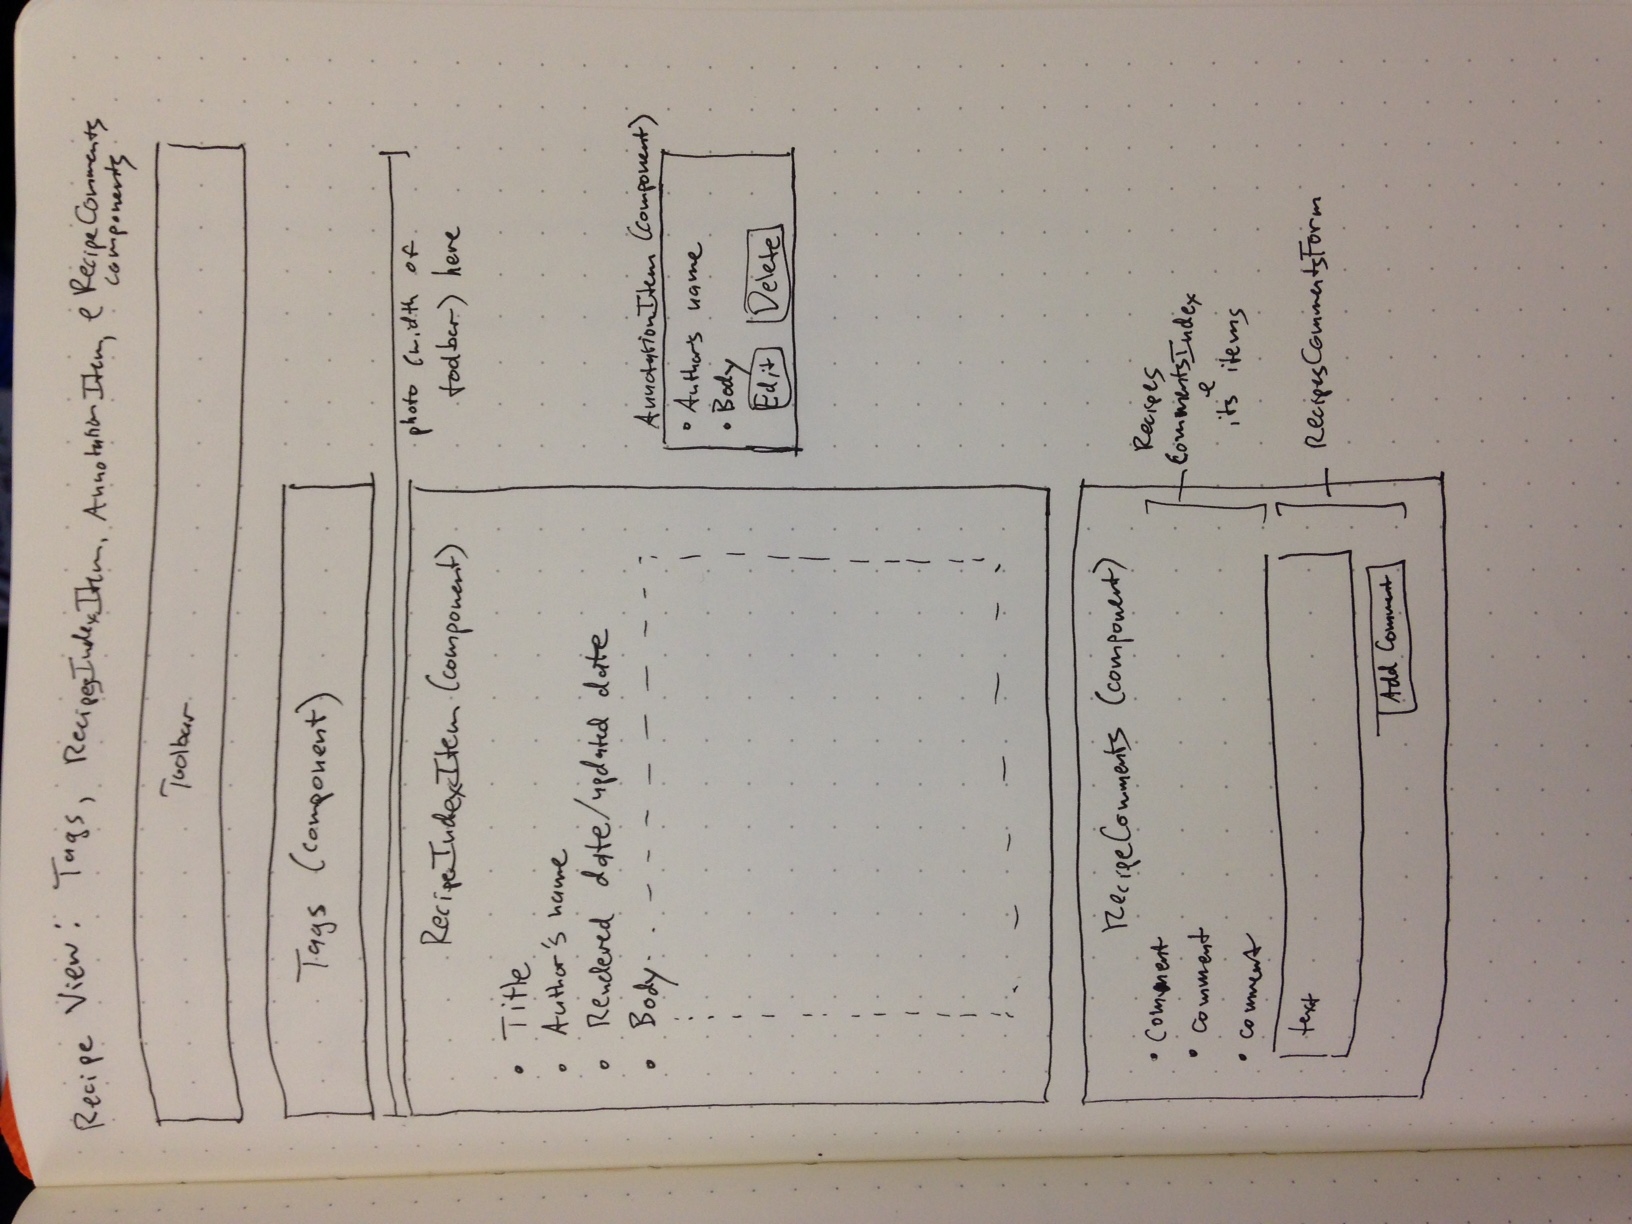 Recipe View: Tags, RecipesIndexItem, AnnotationItem, e RecipeComments
components
Toolbar
Tags (component)
photo (width of
toolbar) here
RecipeIndexItem (component)
• Title
• Author's name
• Rendered date/updated date
• Body
AnnotationItem (component)
• Author's name
• Body
Edit Delete
RecipeComments (component)
• Comment
• comment
• comment
Recipes
CommentsIndex
e
its items
text
Add Comment
RecipesCommentsForm